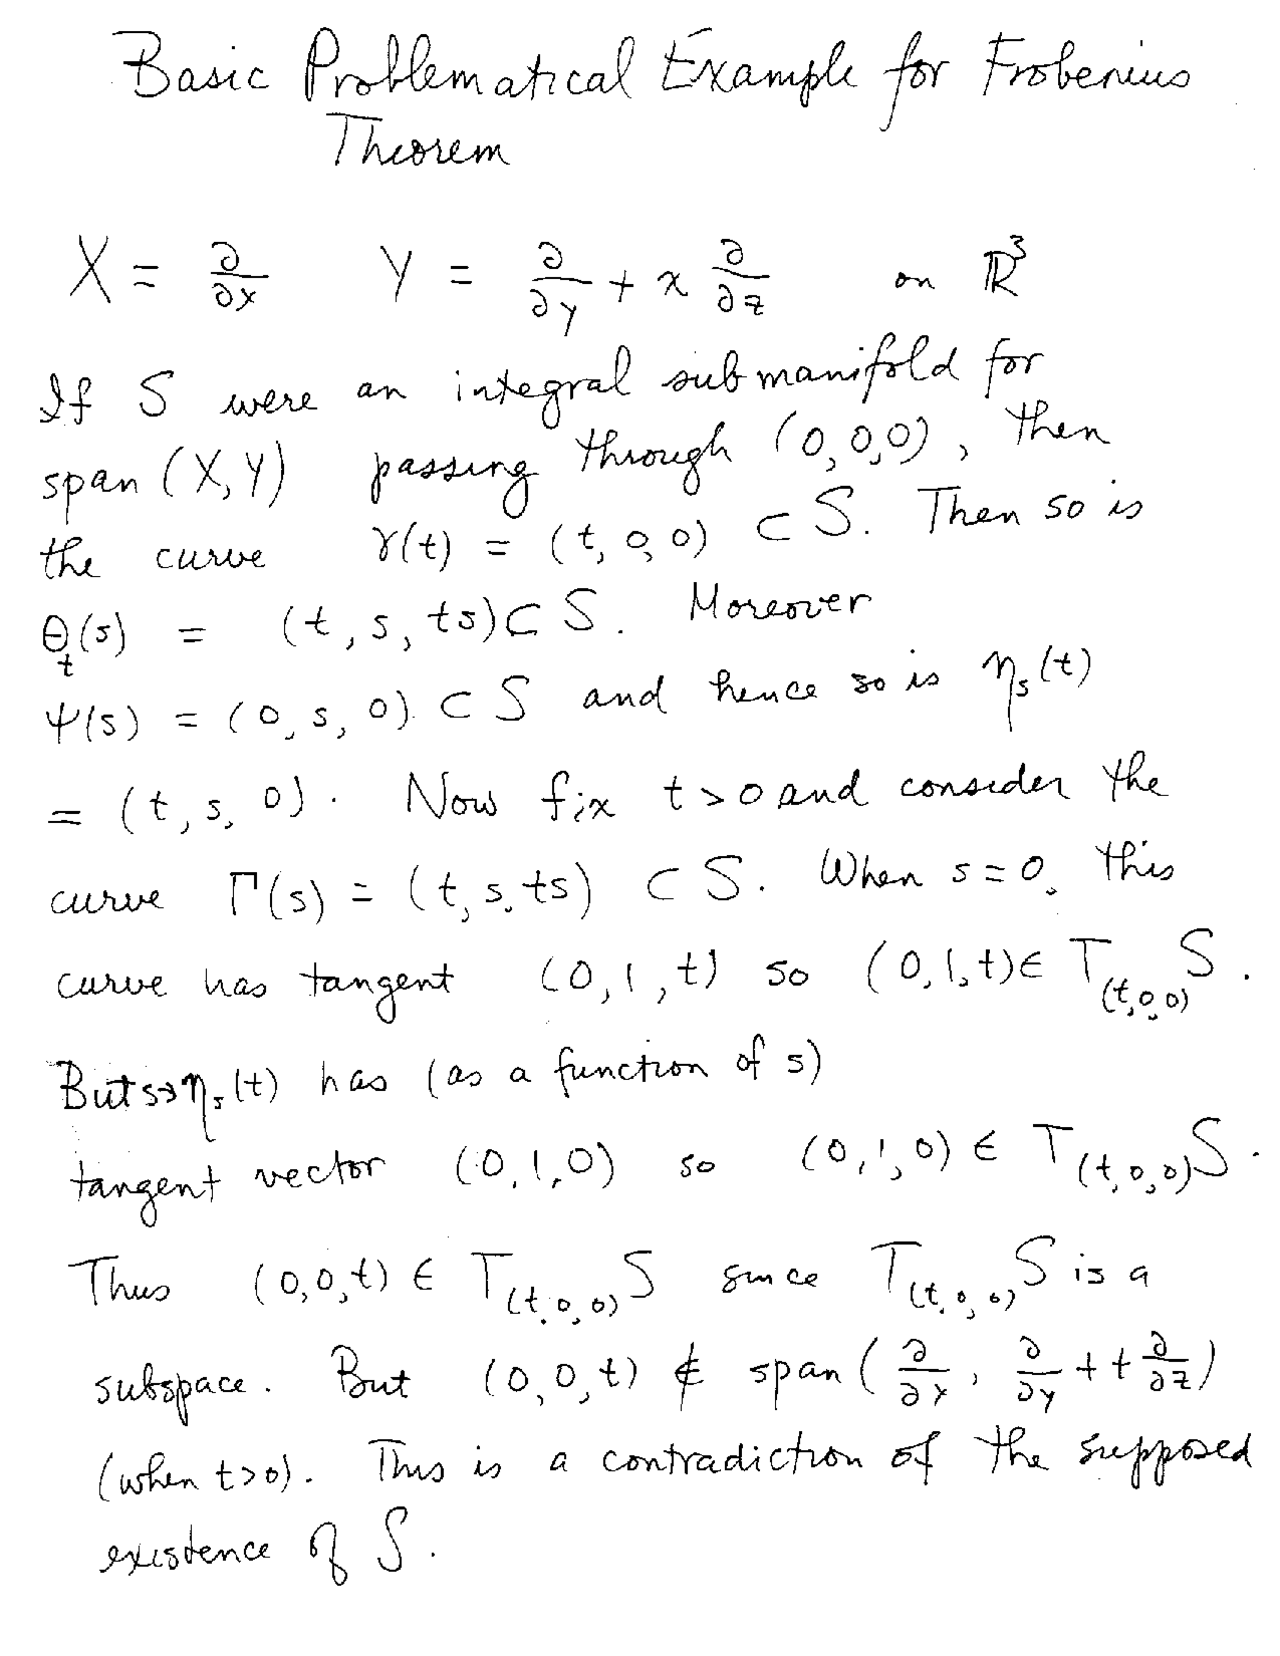 Basic Problematical Example for Frobenius
Theorem
X = ∂/∂x Y = ∂/∂y + x ∂/∂z on ℝ³
If S were an integral submanifold for
span (X,Y) passing through (0,0,0), then
the curve γ(t) = (t,0,0) ⊂ S. Then so is
θ_t(s) = (t, s, ts) ⊂ S. Moreover
ψ(s) = (0, s, 0) ⊂ S and hence so is η_s(t)
= (t, s, 0). Now fix t>0 and consider the
curve Γ(s) = (t, s, ts) ⊂ S. When s=0, this
curve has tangent (0,1,t) so (0,1,t) ∈ T_(t,0,0) S.
But s→η_s(t) has (as a function of s)
tangent vector (0,1,0) so (0,1,0) ∈ T_(t,0,0) S.
Thus (0,0,t) ∈ T_(t,0,0) S since T_(t,0,0) S is a
subspace. But (0,0,t) ∉ span (∂/∂x, ∂/∂y + t ∂/∂z)
(when t>0). This is a contradiction of the supposed
existence of S.